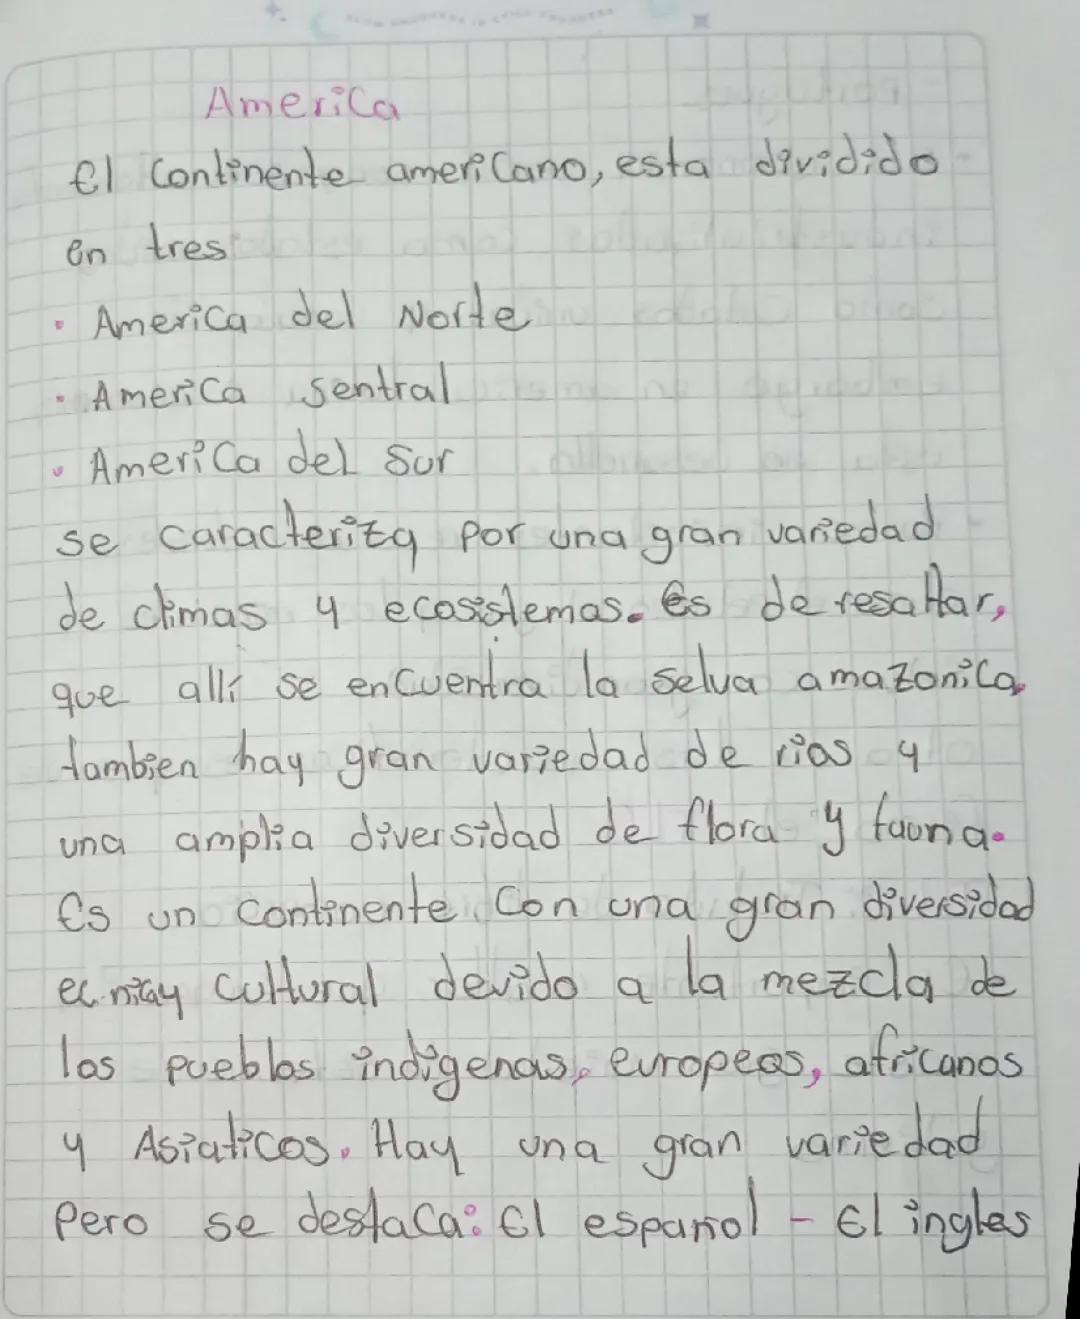 America
El continente americano, esta dividido
en tres
• America del Norte
• America sentral
• America del Sur
se caracteriza por una gran variedad
de climas y ecosistemas. Es de resaltar,
que allí se encuentra la selva amazonica,
tambien hay gran variedad de rios y
una amplia diversidad de flora y fauna.
Es un continente con una gran diversidad
y cultural devido a la mezcla de
los pueblos indigenas, europeos, africanos
y Asiaticos. Hay una gran variedad
Pero se destaca: El español - El ingles